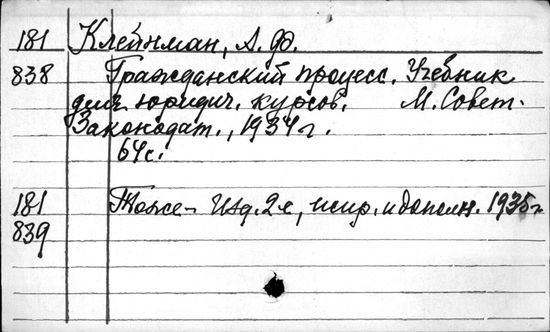 181 Клейнман, А. Ф.
838 Гражданский процесс. Учебник
для юридич. курсов. М. Совет.
Законодат., 1934 г.
64 с.
181 Тоже – Изд. 2-е, испр. и дополн. 1935 г.
839